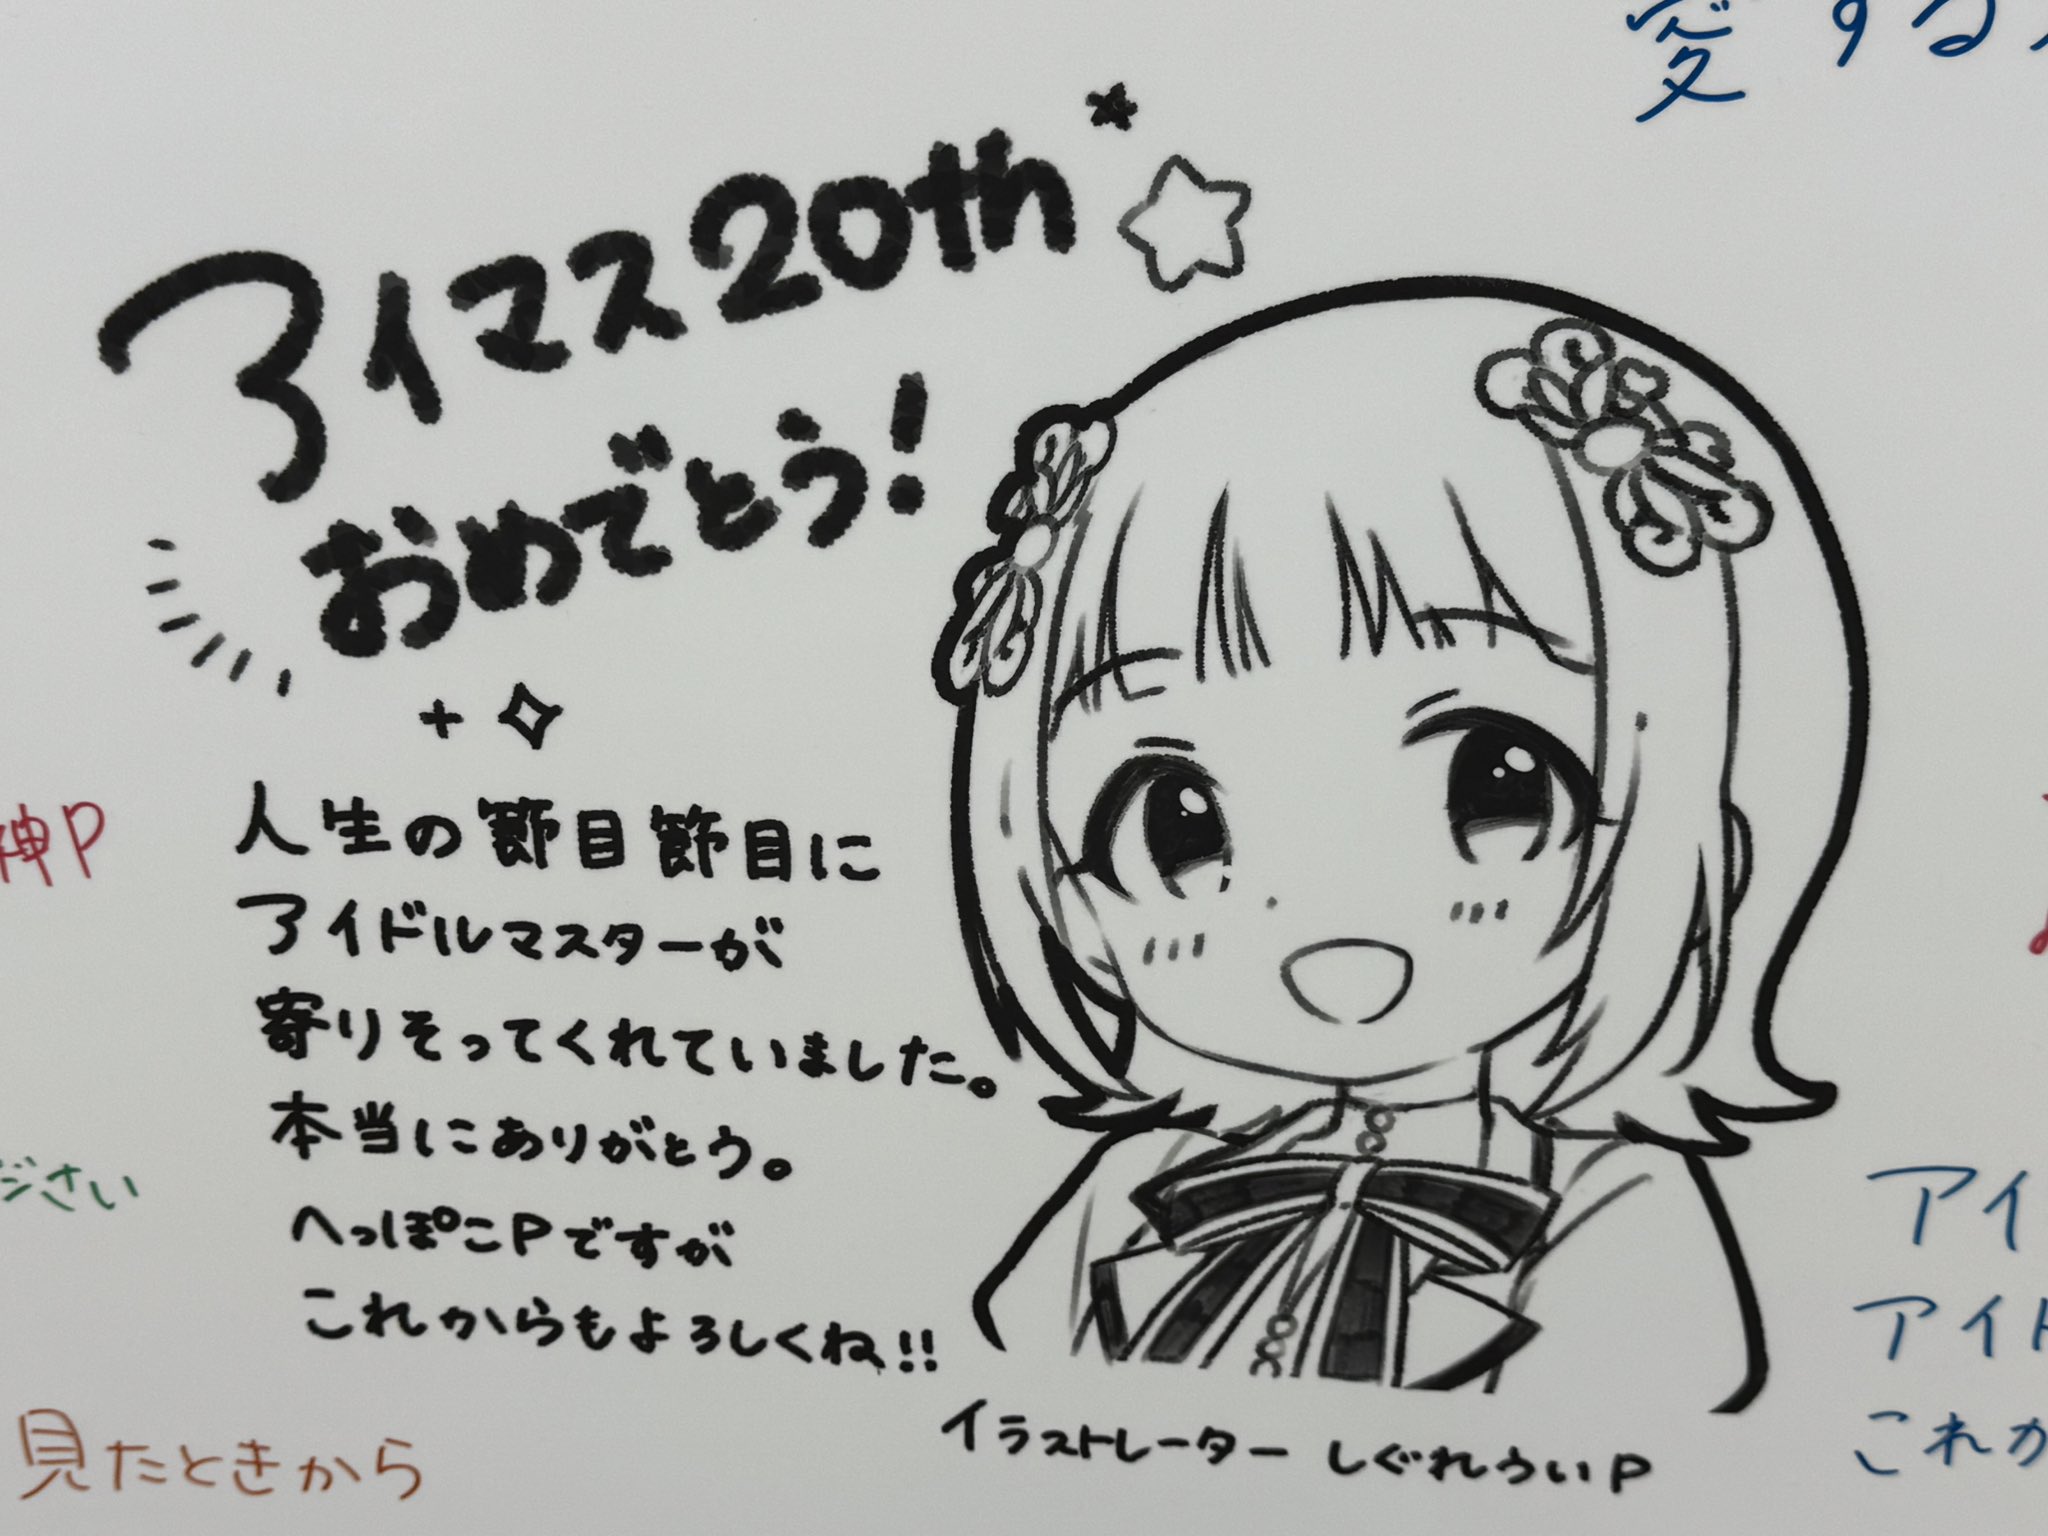 愛する
アイマス20th
おめでとう!
人生の節目節目に
アイドルマスターが
寄りそってくれていました。
本当にありがとう。
へっぽこPですが
これからもよろしくね!!
イラストレーター しぐれういP
神P
ださい
見たときから
アイ
アイド
これか